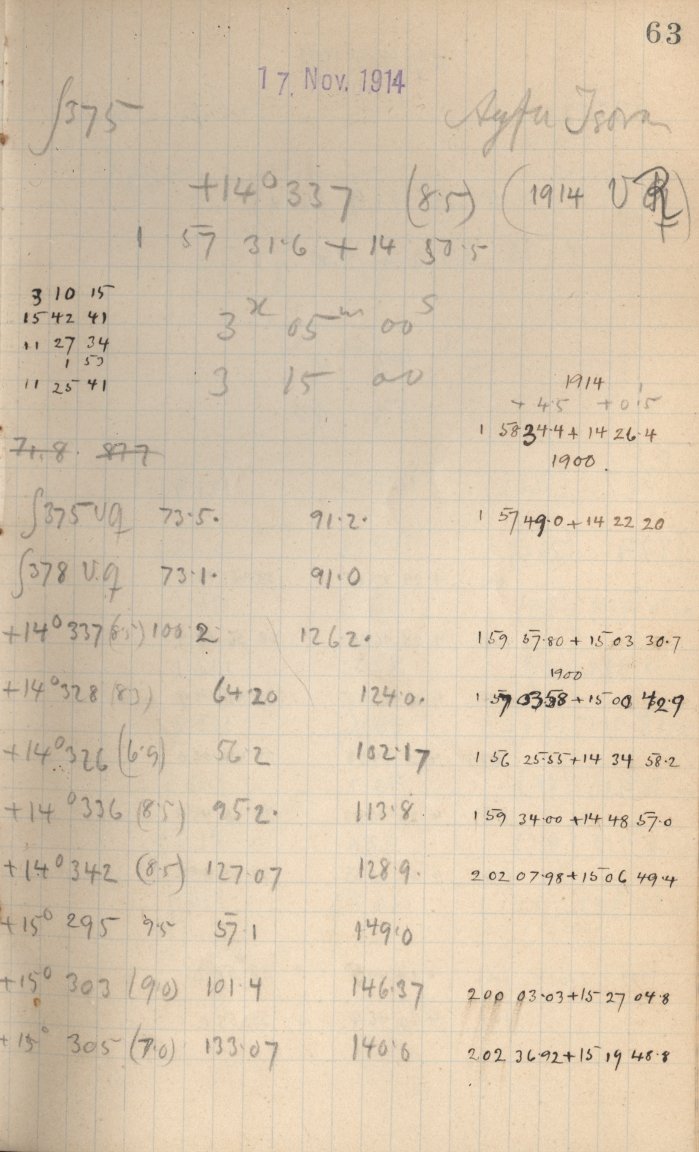 63
17. Nov. 1914
∫375
+14° 337 (8.5) (1914 V
1 57 31.6 + 14 50.5
3 10 15
15 42 41
11 27 34
1 53
11 25 41
3 05ᵐ 00ˢ
3 15 00
1914
+ 45 + 0.5
1 58 34.4 + 14 26.4
1900.
71.8. 877
∫375 V Q 73.5. 91.2. 1 57 49.0 + 14 22 20
∫378 V.Q 73.1. 91.0
+14° 337 (8.5) 100 2 126 2. 1 59 57.80 + 15 03 30.7
1900
+14° 328 64 20 124.0. + 15 00 42.9
+14° 326 (6.9) 56 2 102.17 1 56 25.55 + 14 34 58.2
+14° 336 (8.5) 95.2. 113.8 1 59 34.00 + 14 48 57.0
+14° 342 (8.5) 127.07 128.9. 2 02 07.98 + 15 06 49.4
+15° 295 9.5 57.1 149.0
+15° 303 (9.0) 101.4 146.37 2 00 03.03 + 15 27 04.8
+15° 305 (7.0) 133.07 140.6 2 02 36.92 + 15 19 48.8